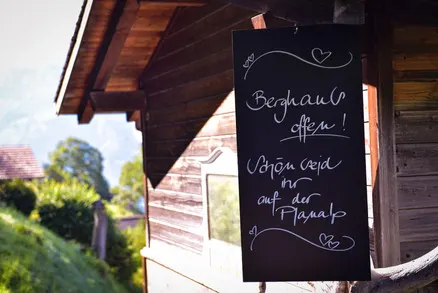 Berghaus
offen!
Schön seid
ihr
auf der
Planalp